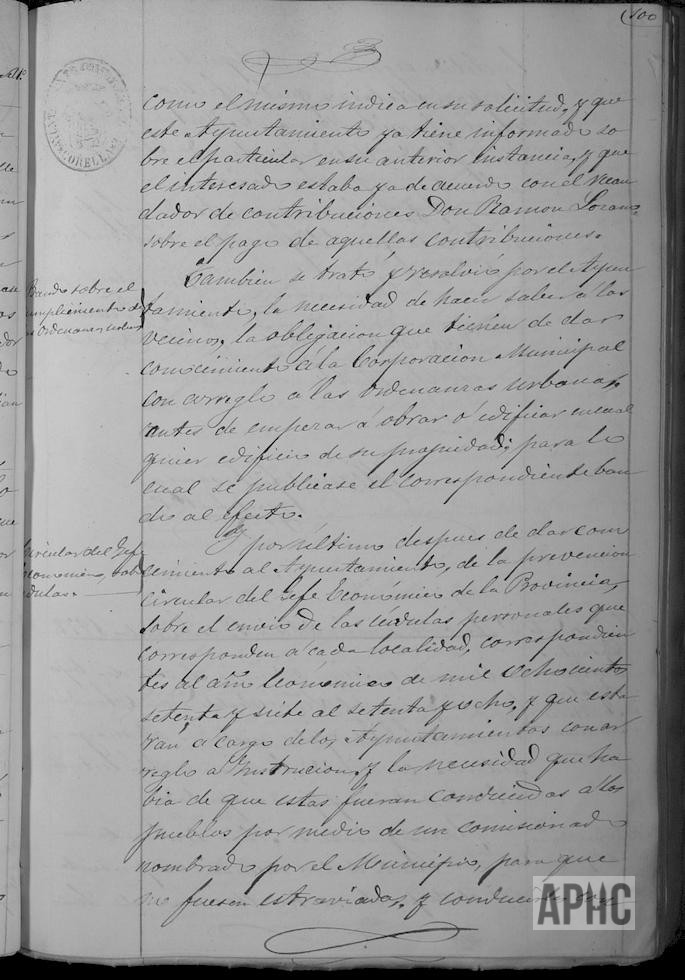 100
como el mismo indica en su solicitud, y que
este Ayuntamiento ya tiene informado so
bre el particular en su anterior instancia, y que
el interesado estaba ya de acuerdo con el recau
dador de contribuciones Don Ramon Lozano
sobre el pago de aquellas contribuciones.
Bando sobre el
cumplimiento de
Ordenanzas urbanas
Tambien se trató y resolvió por el Ayun
tamiento, la necesidad de hacer saber á los
vecinos, la obligacion que tienen de dar
conocimiento á la Corporacion Municipal
con arreglo a las Ordenanzas urbanas,
antes de empezar á obrar ó edificar en cual
quier edificio de su propiedad; para lo
cual se publicase el correspondiente ban
do al efecto.
Circular del Gefe
Economico, sobre
cedulas.
Y por último despues de dar cono
cimiento al Ayuntamiento, de la prevencion
circular del Gefe Económico de la Provincia,
sobre el envio de las cédulas personales que
corresponden á cada localidad, correspondien
tes al año Económico de mil ochocientos
setenta y siete al setenta y ocho, y que esta
rán, a cargo de los Ayuntamientos con ar
reglo a Instruccion, y la necesidad que ha
bia de que estas fueran conducidas a los
pueblos por medio de un comisionado
nombrado por el Municipio, para que
no fuesen estraviadas, y conducirlas
APHC